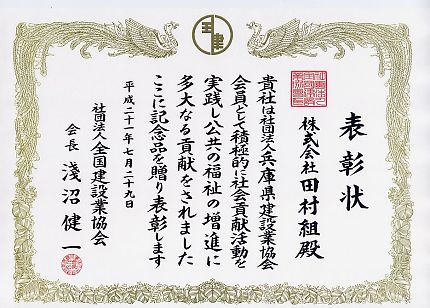 表彰状
株式会社田村組殿
貴社は社団法人兵庫県建設業協会
会員として積極的に社会貢献活動を
実践し公共の福祉の増進に
多大なる貢献をされました
ここに記念品を贈り表彰します
平成二十一年七月二十九日
社団法人全国建設業協会
会長 淺沼健一